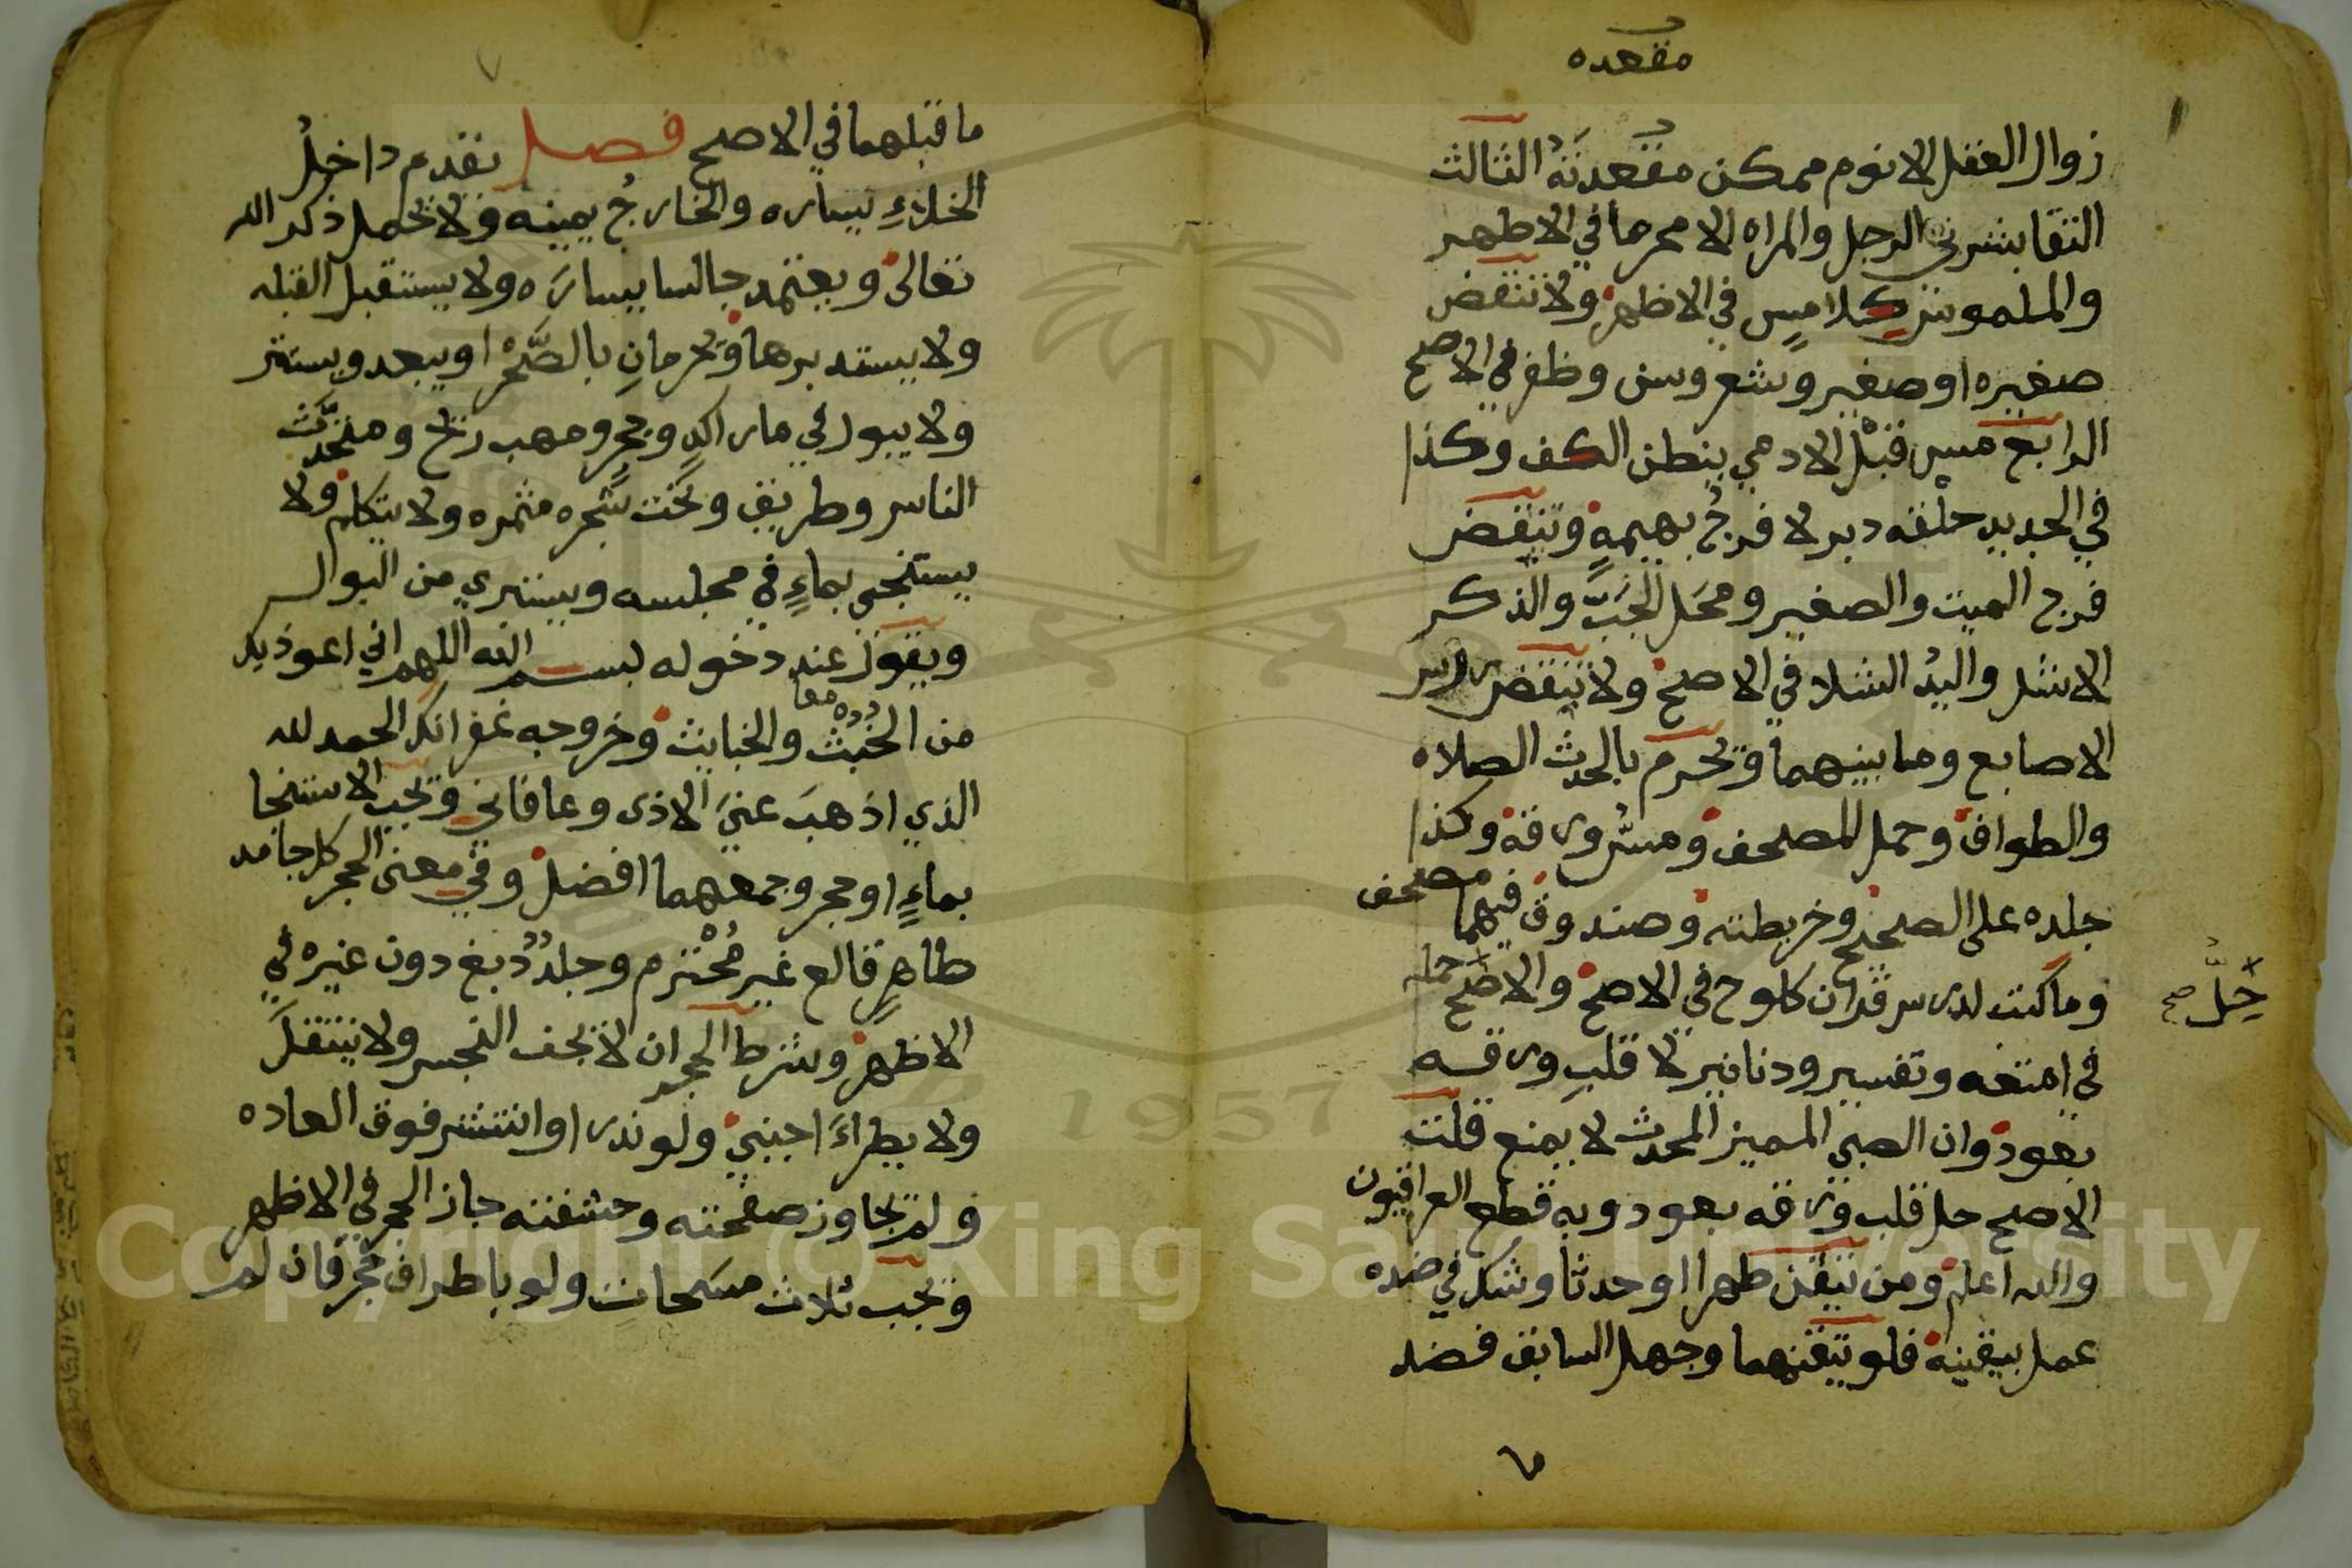 مقعده
زوال العقل الا نوم ممكن مقعدته الثالث
التقا بشرتي الرجل والمراه الا محرما في الاظهر
والملموس كلامس في الاظهر ولا تنقض
صغيره او صغير وشعر وسن وظفر في الاصح
الرابع مس قبل الادمي ببطن الكف وكذا
في الجديد حلقه دبر لا فرج بهيمة وتنقض
فرج الميت والصغير ومحل الجب والذكر
الاشل واليد الشلا في الاصح ولا تنقض راس
الاصابع وما بينهما وتحرم بالحدث الصلاه
والطواف وحمل المصحف ومس ورقه وكذا
جلده على الصحيح وخريطته وصندوق فيهما مصحف
وما كتب لدرس قران كلوح في الاصح والاصح حمله
حل صح
في امتعه وتفسير ودنانير لا قلب ورقه
بعود وان الصبي المميز المحدث لا يمنع قلت
الاصح حل قلب ورقه بعود وبه قطع العراقيون
والله اعلم ومن تيقن طهرا او حدثا وشك في ضده
عمل بيقينه فلو تيقنهما وجهل السابق فضد
٦
٧
ما قبلهما في الاصح فصل يقدم داخل
الخلاء يساره والخارج يمينه ولا يحمل ذكر الله
تعالى ويعتمد جالسا يساره ولا يستقبل القبله
ولا يستدبرها ويحرمان بالصحرا ويبعد ويستتر
ولا يبول في ما راكد وجحر ومهب ريح ومتحدث
الناس وطريق وتحت شجره مثمره ولا يتكلم ولا
يستنجي بماء في مجلسه ويستبري من البول
ويقول عند دخوله بسم الله اللهم اني اعوذ بك
من الخبث والخبايث وخروجه غفرانك الحمد لله
معا
الذي اذهب عني الاذى وعافاني وتجب الاستنجا
بماء او حجر وجمعهما افضل وفي معنى الحجر كل جامد
طاهر قالع غير محترم وجلد دبغ دون غيره في
الاظهر وشرط الحجر ان لا يجف النجس ولا ينتقل
ولا يطراء اجنبي ولو ندر او انتشر فوق العاده
ولم يجاوز صفحته وحشفته جاز الحجر في الاظهر
وتجب ثلاث مسحات ولو باطراف حجر فان لم
Copyright © King Saud University
1957